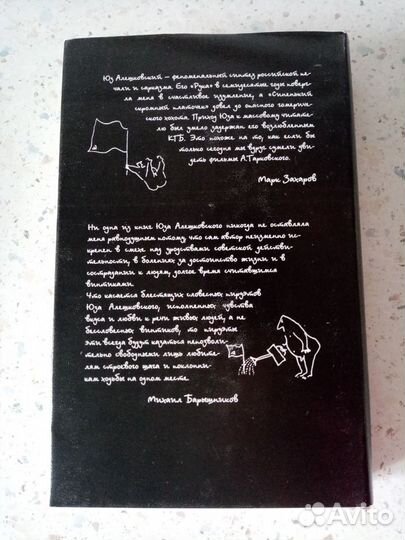 Юз Алешковский – феноменальный синтез российской пе-
чали и сарказма. Его «Рука» в семидесятые годы поверг-
ла меня в счастливое изумление, а «Синенький
скромный платочек» довел до опасного гомерического
хохота. Приход Юза к массовому читате-
лю был умело задержан его возлюбленным
КГБ. Это похоже на то, как если бы
только сегодня мы вдруг сумели уви-
деть фильмы А.Тарковского.
Марк Захаров
Ни одна из книг Юза Алешковского никогда не оставляла
меня равнодушным потому, что сам автор неизменно ис-
кренен в смехе над уродствами советской действи-
тельности, в болениях за достоинство жизни и в
сострадании к людям, долгое время считавшимся
винтиками.
Что касается блестящих словесных пируэтов
Юза Алешковского, исполненных чувства
вкуса и любви к речи живых людей, а не
бессловесных винтиков, то пируэты
эти всегда будут казаться непозволи-
тельно свободными лишь любите-
лям строевого шага и поклонни-
кам ходьбы на одном месте.
Михаил Барышников
Avito